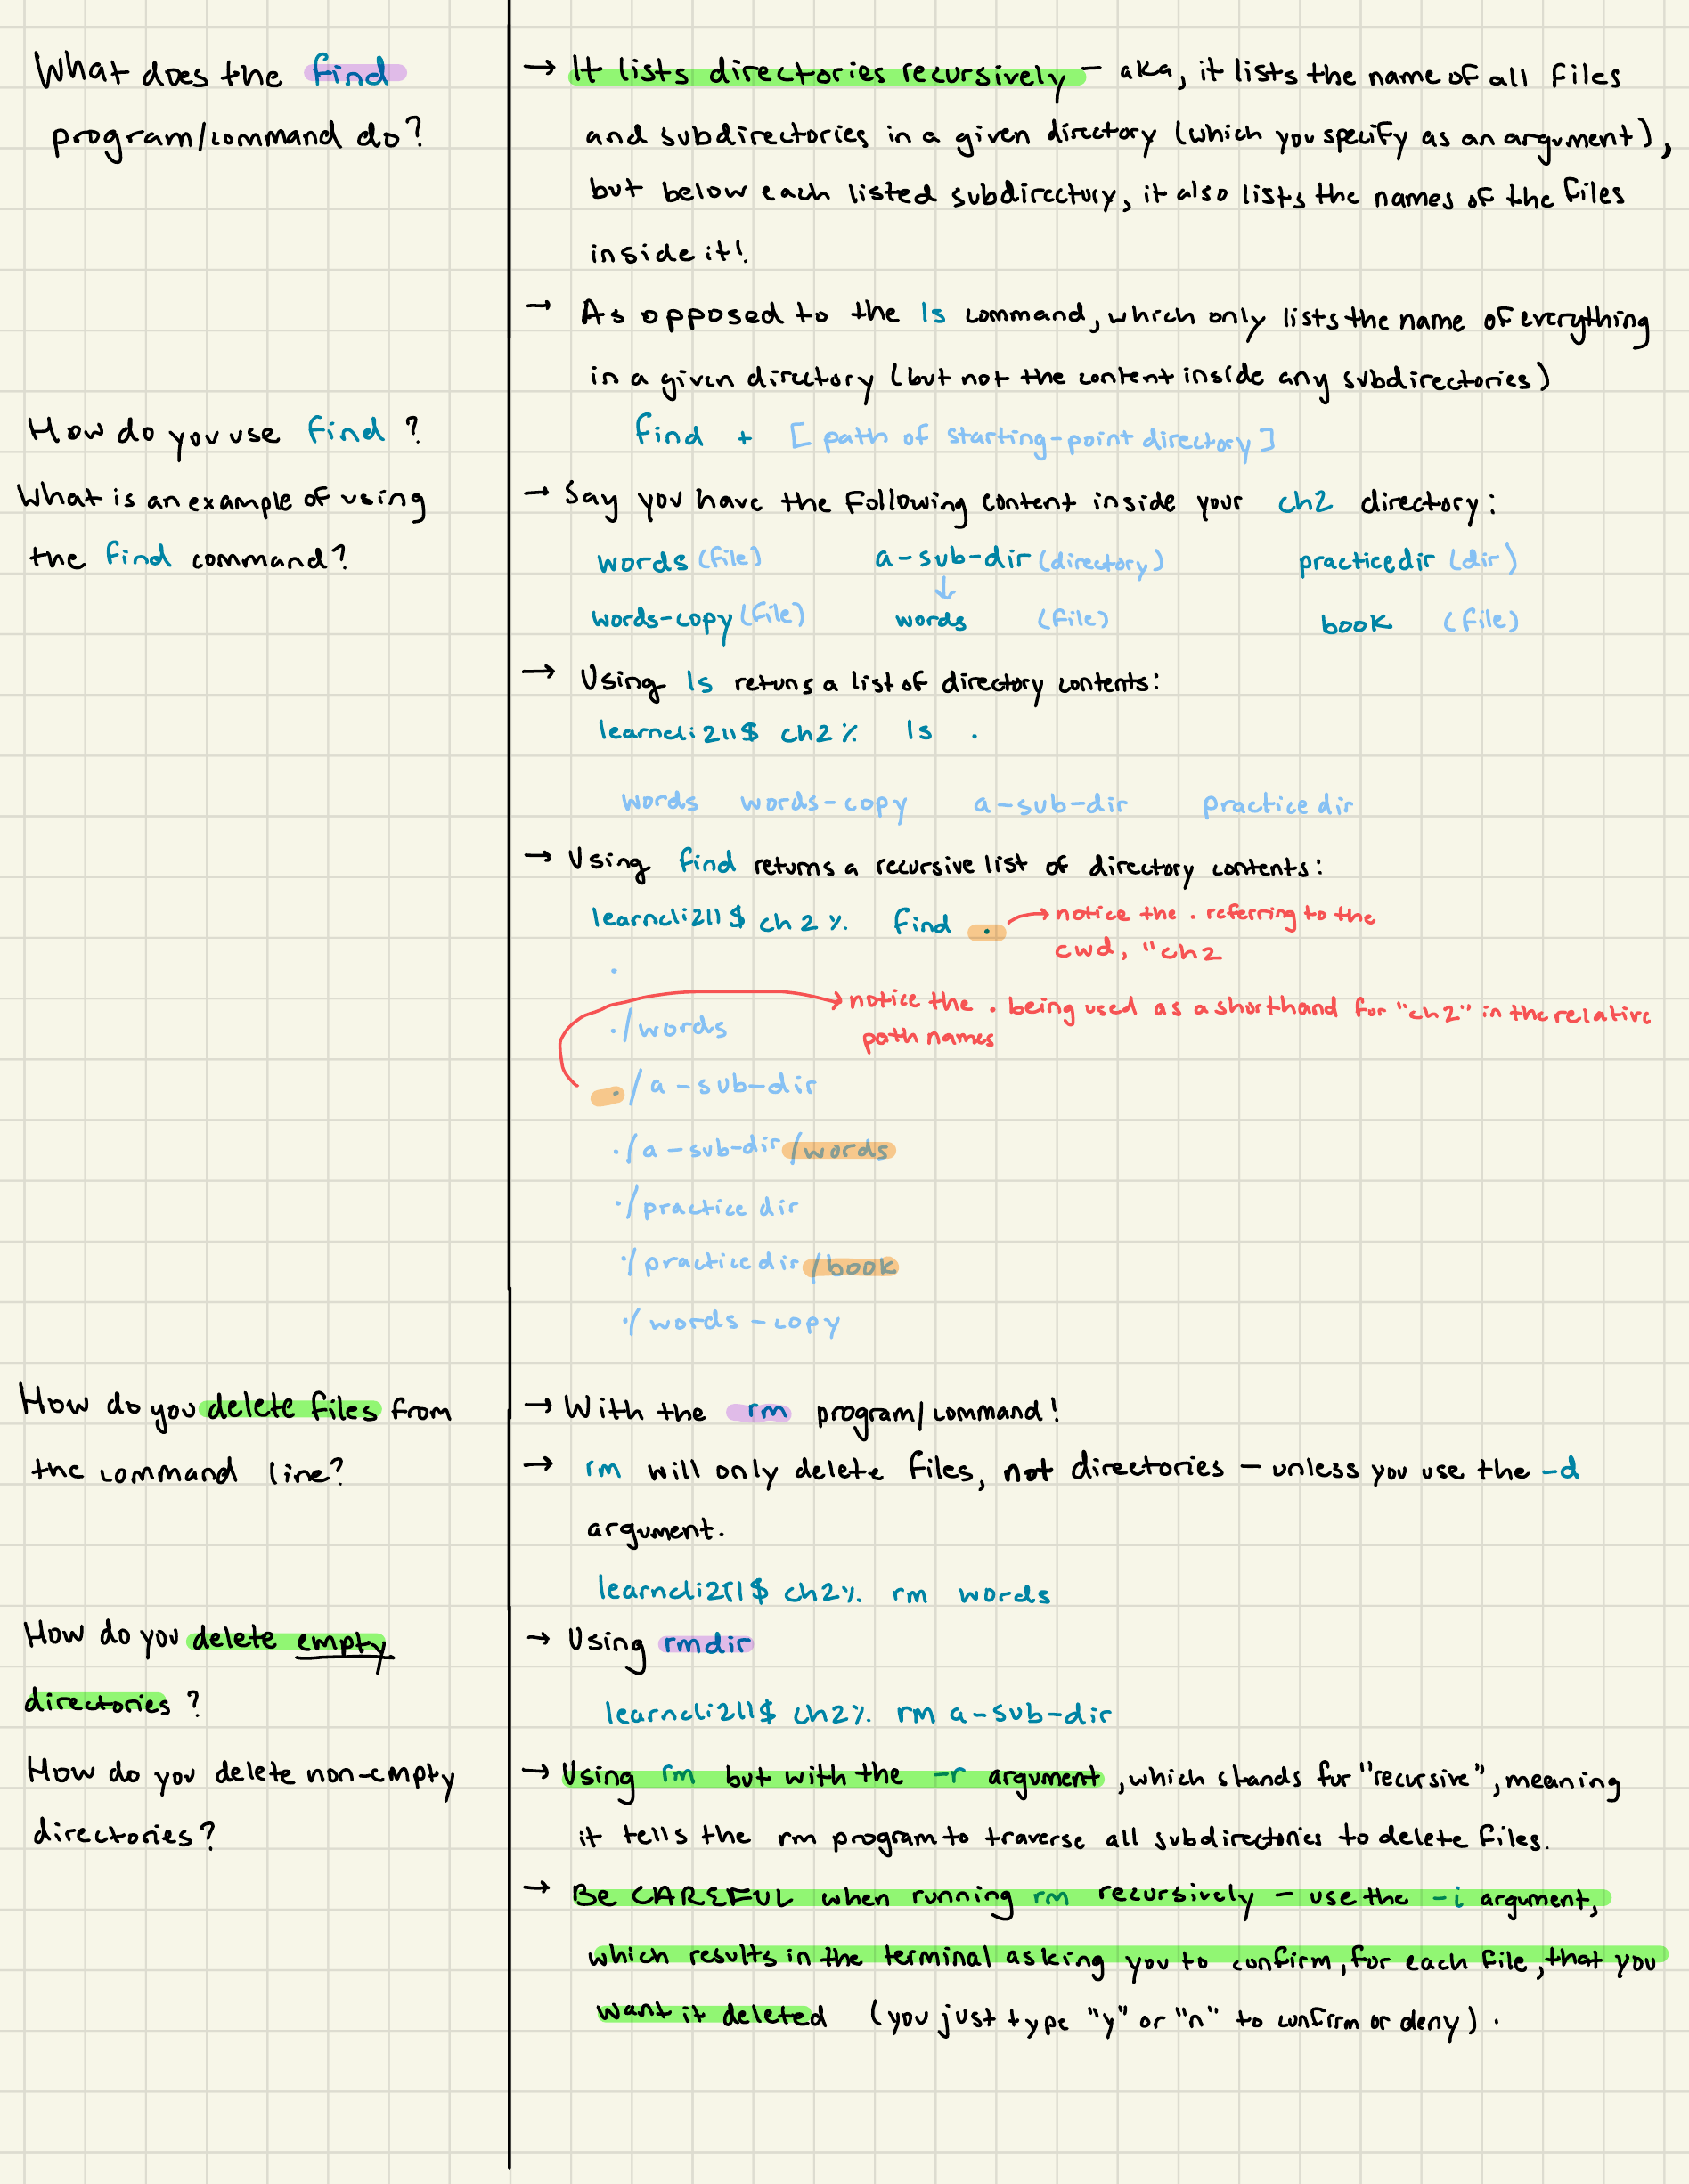 What does the find
program/command do?
→ It lists directories recursively – aka, it lists the name of all files
and subdirectories in a given directory (which you specify as an argument),
but below each listed subdirectory, it also lists the names of the files
inside it!
→ As opposed to the ls command, which only lists the name of everything
in a given directory (but not the content inside any subdirectories)
How do you use find?
find + [path of starting-point directory]
What is an example of using
the find command?
→ Say you have the following content inside your ch2 directory:
words (file) a-sub-dir (directory) practicedir (dir)
↓
words-copy (file) words (file) book (file)
→ Using ls retuns a list of directory contents:
learncli211$ ch2 % ls .
words words-copy a-sub-dir practicedir
→ Using find returns a recursive list of directory contents:
learncli211$ ch2 % find .
→ notice the . referring to the
cwd, "ch2
.
./words
→ notice the . being used as a shorthand for "ch2" in the relative
path names
./a-sub-dir
./a-sub-dir/words
./practicedir
./practicedir/book
./words-copy
How do you delete files from
the command line?
→ With the rm program/command!
→ rm will only delete files, not directories – unless you use the -d
argument.
learncli211$ ch2% rm words
How do you delete empty
directories?
→ Using rmdir
learncli211$ ch2% rm a-sub-dir
How do you delete non-empty
directories?
→ Using rm but with the -r argument, which stands for "recursive", meaning
it tells the rm program to traverse all subdirectories to delete files.
→ Be CAREFUL when running rm recursively – use the -i argument,
which results in the terminal asking you to confirm, for each file, that you
want it deleted (you just type "y" or "n" to confirm or deny).